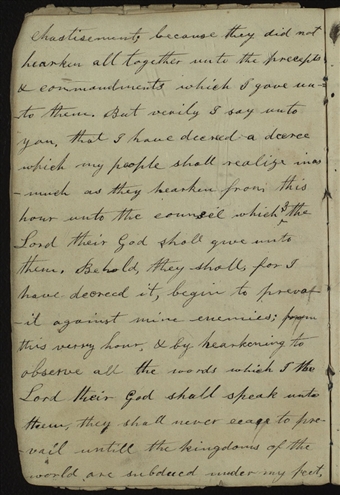 chastisement, because they did not
hearken all together unto the precepts
& commandments which I gave un-
to them. But verily I say unto
you, that I have decreed a decree
which my people shall realize inas
much as they hearken from this
hour unto the council which I the
Lord their God shall give unto
them. Behold, they shall, for I
have decreed it, begin to prevai
il against mine enemies; from
this verry hour, & by hearkening to
observe all the words which I the
Lord their God shall speak unto
them, they shall never ceace to pre-
vail untill the kingdoms of the
world are subdued under my feet,